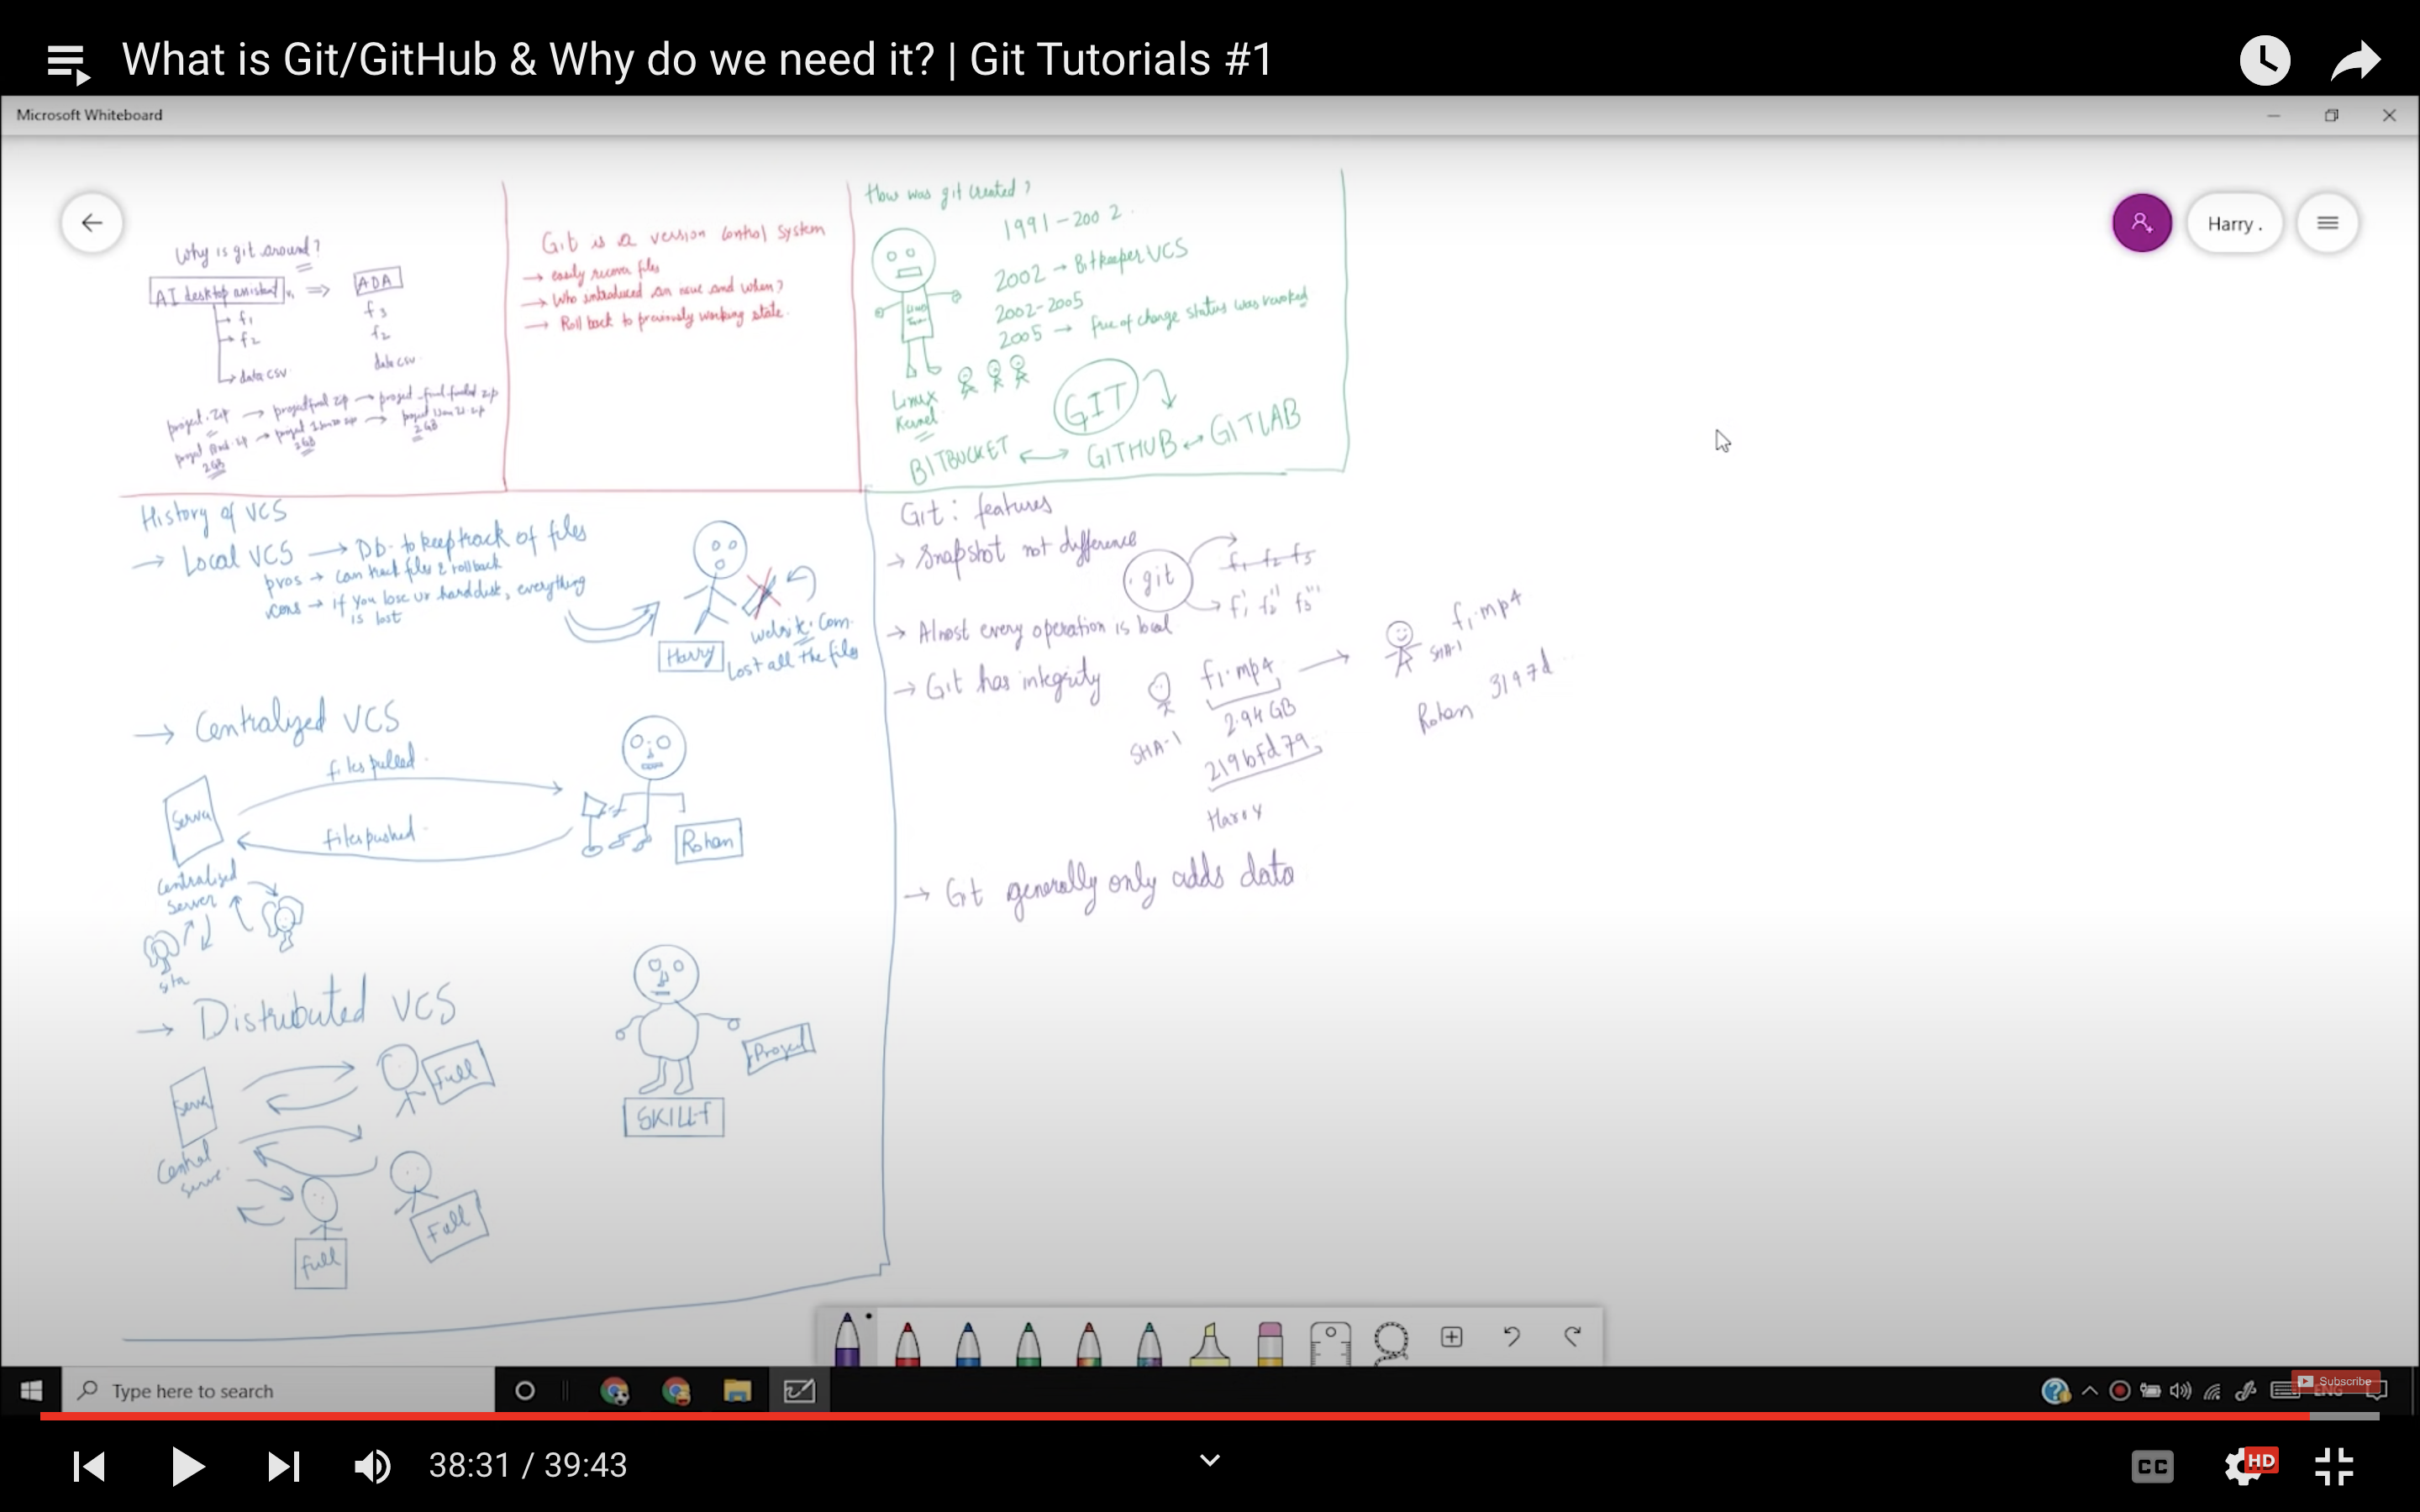 What is Git/GitHub & Why do we need it? | Git Tutorials #1
Microsoft Whiteboard
Harry .
Why is git around?
AI desktop assistant v1 ⇒ ADA
→ f1
→ f2
→ data csv
f3
f2
data csv
project.zip → projectfinal zip → project_final_final zip
2GB
2GB
2GB
Git is a version control system
→ easily recover files
→ Who introduced an issue and when?
→ Roll back to previously working state.
How was git created?
1991-2002
2002 → Bitkeeper VCS
2002-2005
2005 → free of charge status was revoked
Linux
Kernel
GIT
BITBUCKET ↔ GITHUB ↔ GITLAB
History of VCS
→ Local VCS → Db- to keep track of files
pros → can track files & rollback
cons → if you lose ur hard disk, everything
is lost
Harry
website.com
Lost all the files
→ Centralized VCS
files pulled
files pushed
Server
Centralized
server
Rohan
→ Distributed VCS
Server
Central
Full
Full
Full
Project
SKILLF
Git: features
→ Snapshot not difference
git
f1 f2 f3
f1' f2'' f3'''
→ Almost every operation is local
→ Git has integrity
f1.mp4 →
2.94 GB
SHA-1
219bfd79
Harry
f1.mp4
SHA-1
Rohan 3197d
→ Git generally only adds data
Type here to search
Subscribe
ENG
38:31 / 39:43
CC
HD